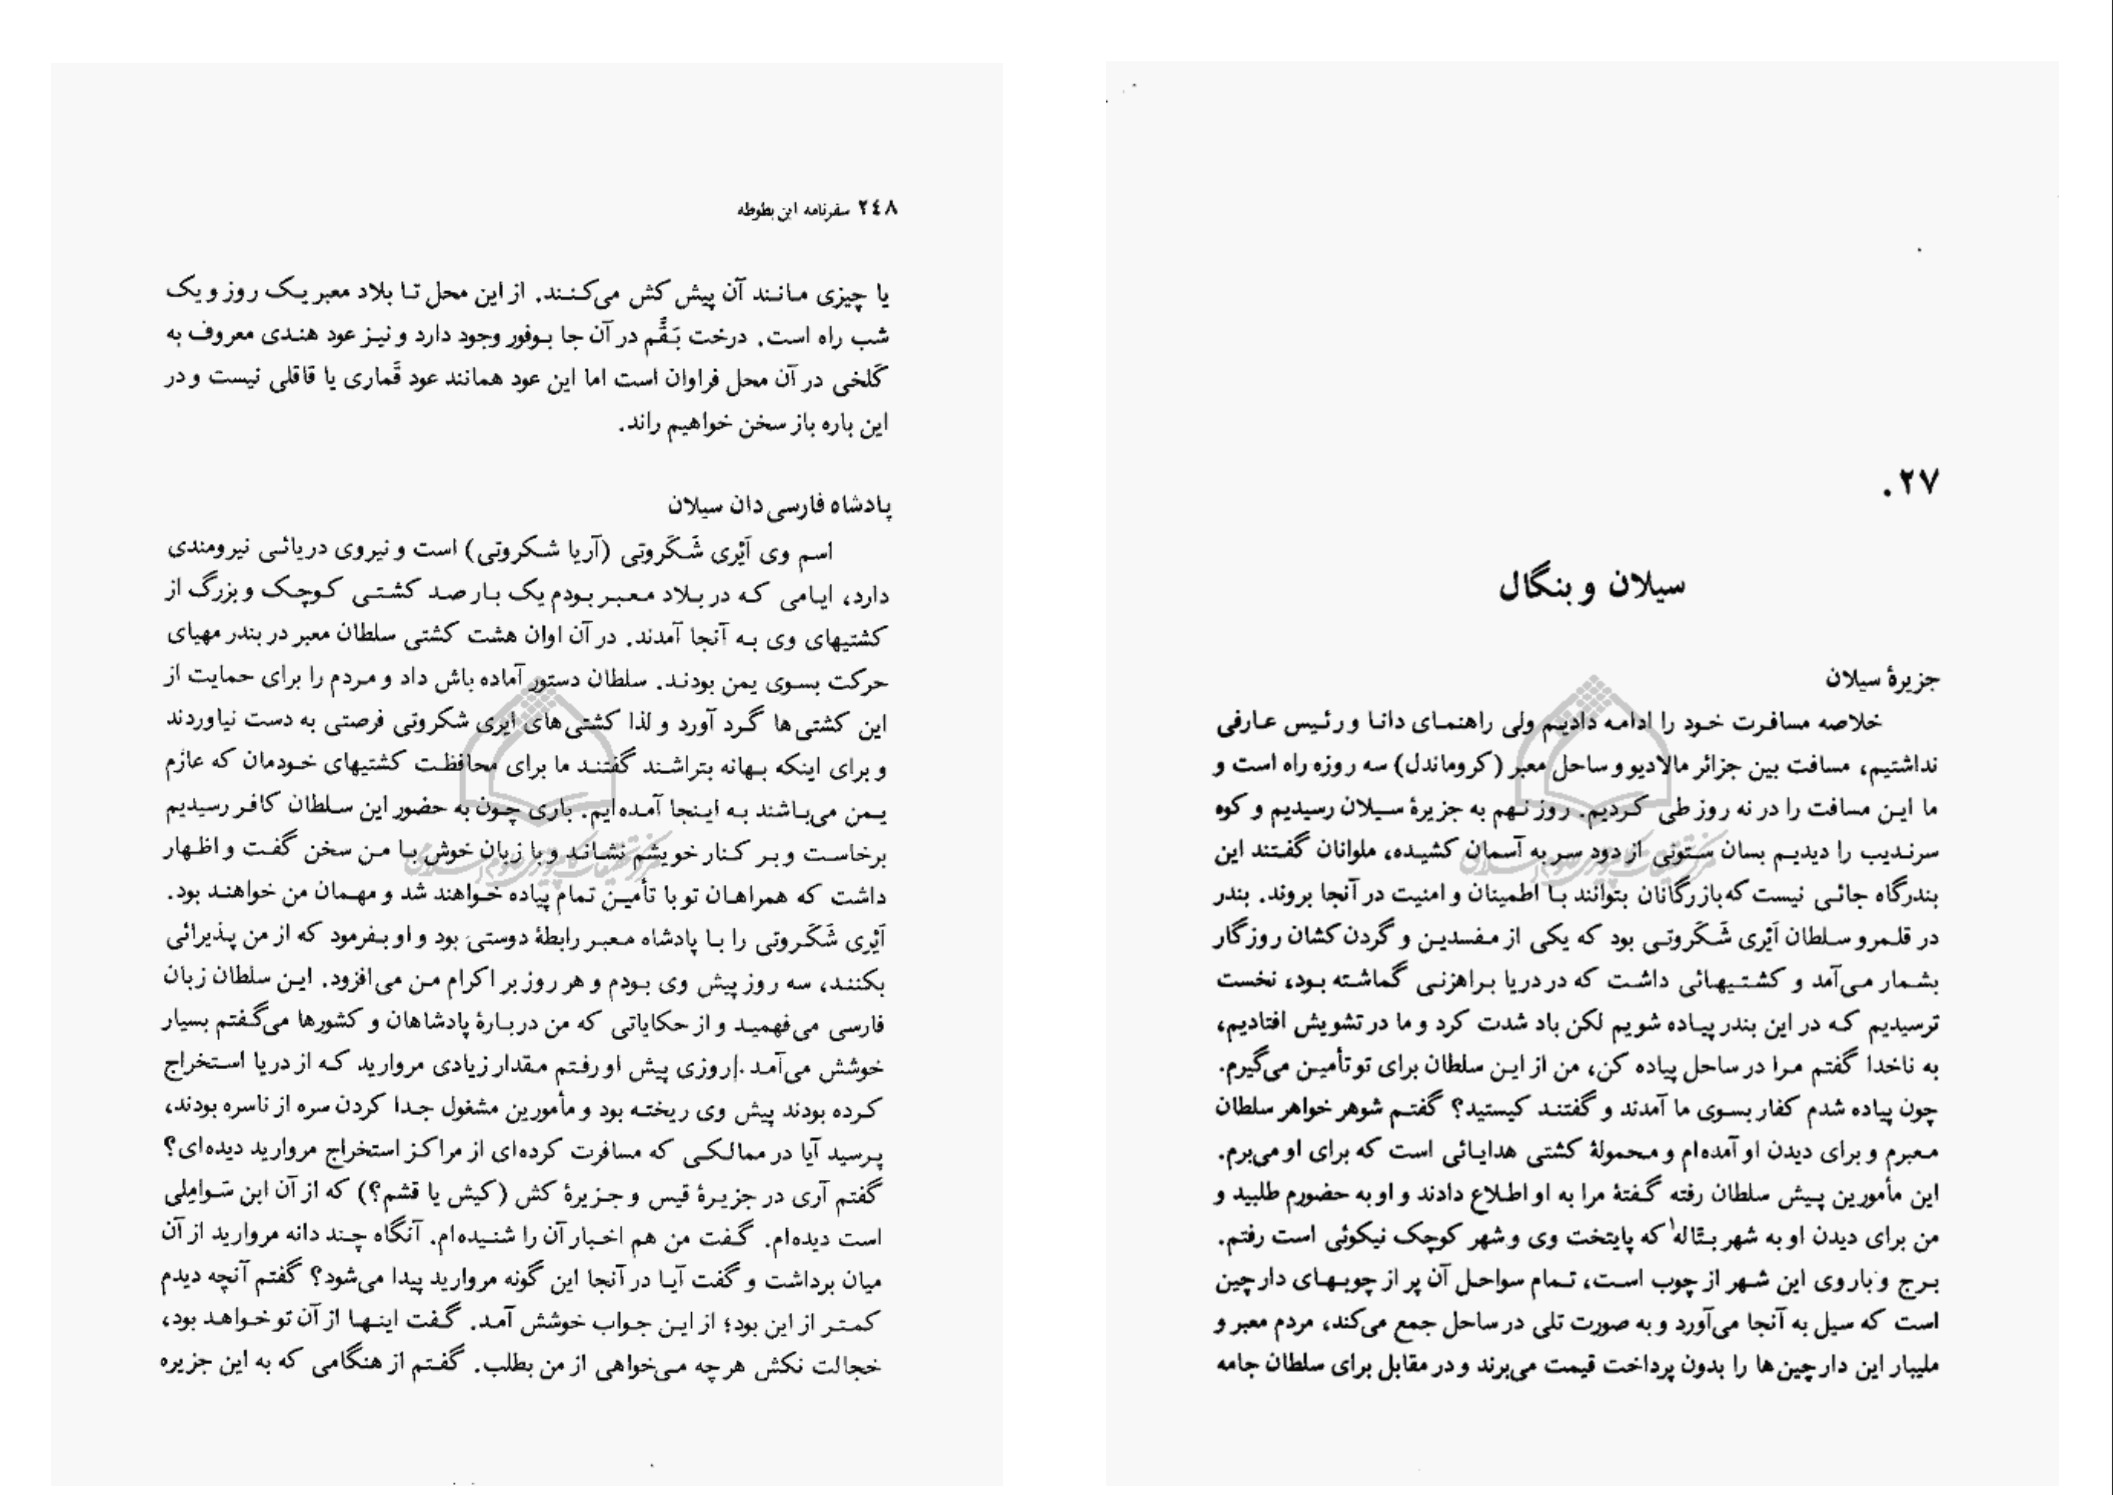 ۲۷.
سیلان و بنگال
جزیرهٔ سیلان
خلاصه مسافرت خود را ادامه دادیم ولی راهنمای دانا و رئیس عارفی
نداشتیم، مسافت بین جزائر مالادیو و ساحل معبر (کروماندل) سه روزه راه است و
ما این مسافت را در نه روز طی کردیم. روز نهم به جزیرهٔ سیلان رسیدیم و کوه
سرندیب را دیدیم بسان ستونی از دود سر به آسمان کشیده، ملوانان گفتند این
بندرگاه جائی نیست که بازرگانان بتوانند با اطمینان و امنیت در آنجا بروند. بندر
در قلمرو سلطان آیْری شَکَروتی بود که یکی از مفسدین و گردن کشان روزگار
بشمار می‌آمد و کشتیهائی داشت که در دریا براهزنی گماشته بود، نخست
ترسیدیم که در این بندر پیاده شویم لکن باد شدت کرد و ما در تشویش افتادیم،
به ناخدا گفتم مرا در ساحل پیاده کن، من از این سلطان برای تو تأمین می‌گیرم.
چون پیاده شدم کفار بسوی ما آمدند و گفتند کیستید؟ گفتم شوهر خواهر سلطان
معبرم و برای دیدن او آمده‌ام و محمولهٔ کشتی هدایائی است که برای او می‌برم.
این مأمورین پیش سلطان رفته گفتهٔ مرا به او اطلاع دادند و او به حضورم طلبید و
من برای دیدن او به شهر بتّاله۱ که پایتخت وی و شهر کوچک نیکوئی است رفتم.
برج و باروی این شهر از چوب است، تمام سواحل آن پر از چوبهای دارچین
است که سیل به آنجا می‌آورد و به صورت تلی در ساحل جمع می‌کند، مردم معبر و
ملیبار این دارچین‌ها را بدون پرداخت قیمت می‌برند و در مقابل برای سلطان جامه
۲٤۸ سفرنامه ابن بطوطه
یا چیزی مانند آن پیش کش می‌کنند. از این محل تا بلاد معبر یک روز و یک
شب راه است. درخت بَقَّم در آن جا بوفور وجود دارد و نیز عود هندی معروف به
کَلخی در آن محل فراوان است اما این عود همانند عود قَماری یا قاقلی نیست و در
این باره باز سخن خواهیم راند.
پادشاه فارسی دان سیلان
اسم وی آیْری شَکَروتی (آریا شکروتی) است و نیروی دریائی نیرومندی
دارد، ایامی که در بلاد معبر بودم یک بار صد کشتی کوچک و بزرگ از
کشتیهای وی به آنجا آمدند. در آن اوان هشت کشتی سلطان معبر در بندر مهیای
حرکت بسوی یمن بودند. سلطان دستور آماده باش داد و مردم را برای حمایت از
این کشتی‌ها گرد آورد و لذا کشتی‌های ایری شکروتی فرصتی به دست نیاوردند
و برای اینکه بهانه بتراشند گفتند ما برای محافظت کشتیهای خودمان که عازم
یمن می‌باشند به اینجا آمده‌ایم. باری چون به حضور این سلطان کافر رسیدیم
برخاست و بر کنار خویشم نشاند و با زبان خوش با من سخن گفت و اظهار
داشت که همراهان تو با تأمین تمام پیاده خواهند شد و مهمان من خواهند بود.
آیْری شَکَروتی را با پادشاه معبر رابطهٔ دوستی بود و او بفرمود که از من پذیرائی
بکنند، سه روز پیش وی بودم و هر روز بر اکرام من می‌افزود. این سلطان زبان
فارسی می‌فهمید و از حکایاتی که من دربارهٔ پادشاهان و کشورها می‌گفتم بسیار
خوشش می‌آمد. روزی پیش او رفتم مقدار زیادی مروارید که از دریا استخراج
کرده بودند پیش وی ریخته بود و مأمورین مشغول جدا کردن سره از ناسره بودند،
پرسید آیا در ممالکی که مسافرت کرده‌ای از مراکز استخراج مروارید دیده‌ای؟
گفتم آری در جزیرهٔ قیس و جزیرهٔ کش (کیش یا قشم؟) که از آن ابن سَواملی
است دیده‌ام. گفت من هم اخبار آن را شنیده‌ام. آنگاه چند دانه مروارید از آن
میان برداشت و گفت آیا در آنجا این گونه مروارید پیدا می‌شود؟ گفتم آنچه دیدم
کمتر از این بود؛ از این جواب خوشش آمد. گفت اینها از آن تو خواهد بود،
خجالت نکش هر چه می‌خواهی از من بطلب. گفتم از هنگامی که به این جزیره